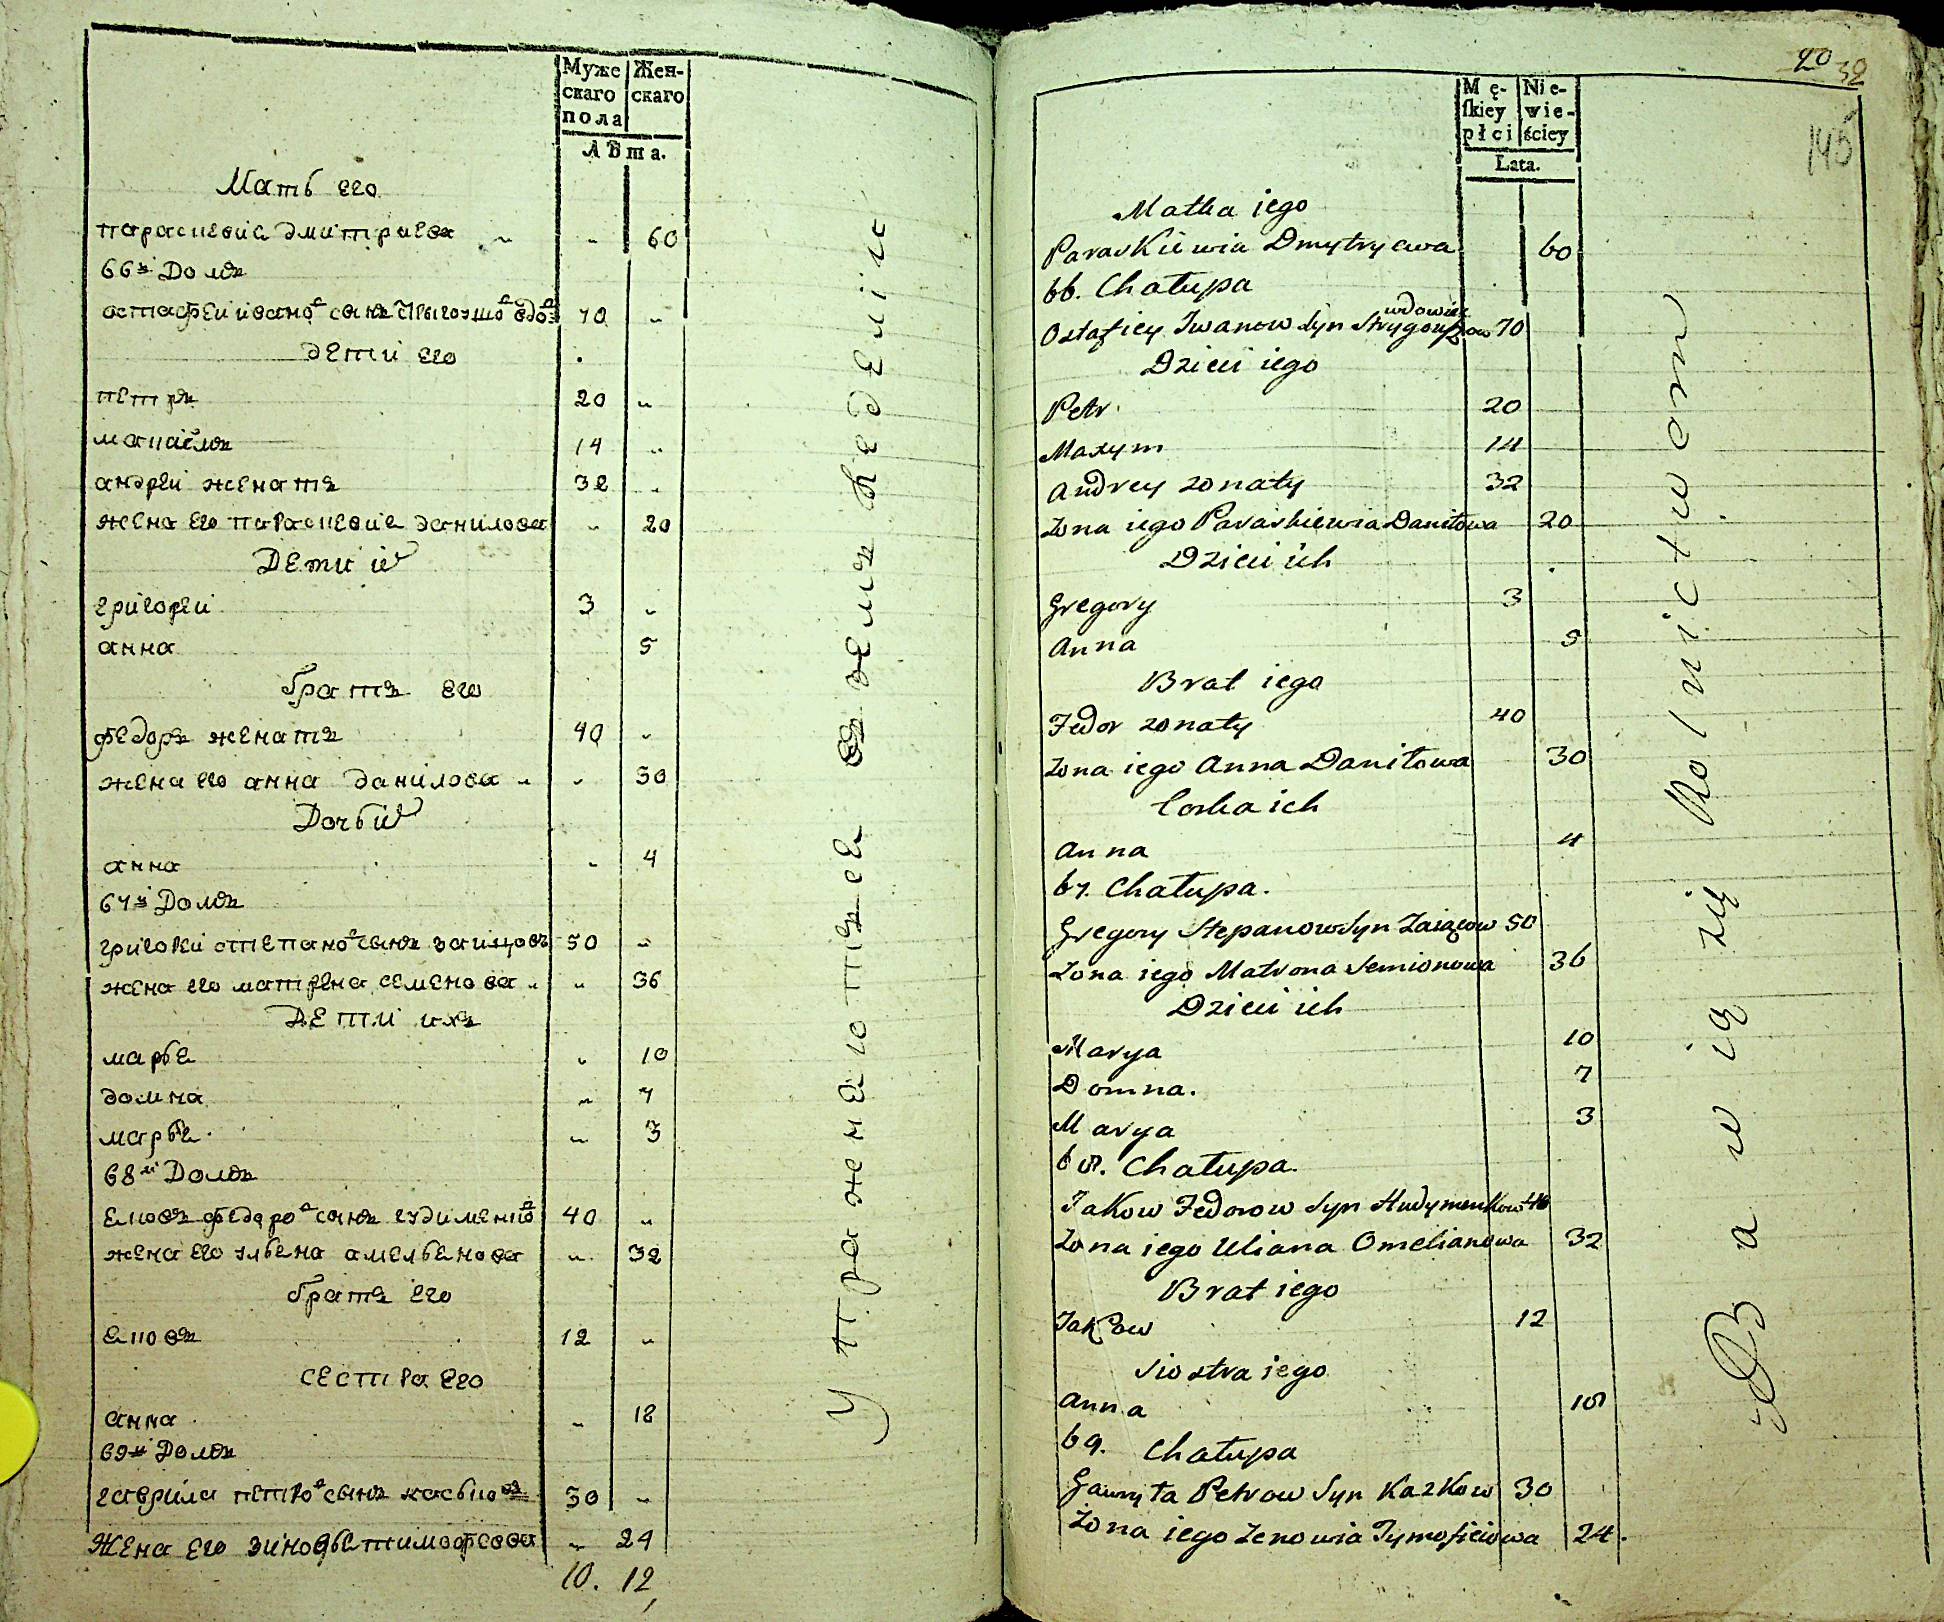 Муже
скаго
пола
Жен-
скаго
Лѣта.
Мать его
параскевиѧ дмитриева „ „ 60
66й Домъ
остафеи ивановъ сынъ вдовъ 70 „
дети его
петръ 20 „
14 „
андреи женатъ 32 „
жена его параскевиѧ данилова „ 20
Дети их
григореи 3 „
анна 5
братъ его
федоръ женатъ 40 „
жена его анна данилова „ „ 30
Дочь их
анна „ 4
67й Домъ
григореи степановъ сынъ заицовъ 50 „
жена его матрена семенова „ „ 36
Дети ихъ
марьѧ „ 10
домна „ 7
марьѧ „ 3
68й Домъ
ѧковъ федоровъ сынъ гудименковъ 40 „
жена его ульѧна амельѧнова „ 32
братъ его
ѧковъ 12 „
сестра его
анна „ 18
69й Домъ
гаврила петровъ сынъ каськовъ 30 „
Жена его зиновьѧ тимофеева „ 24
10. 12
Упражнѧютсѧ въ земледелiи
20 32
145
Mę-
skiey
płci
Nie-
wie-
ściey
Lata.
Matka iego
Paraskiewia Dmytryewa 60
66. Chałupa
Ostafiey Iwanow Syn Strygouszow wdowiec 70
Dzieci iego
Petr 20
Maxym 14
Andrey zonaty 32
Zona iego Paraskiewia Daniłowa 20
Dzieci ich
Gregory 3
Anna 5
Brat iego
Fedor zonaty 40
Zona iego Anna Daniłowa 30
Corka ich
Anna 4
67. Chałupa.
Gregory Stepanow Syn Zaiącow 50
Zona iego Matrona Semionowa 36
Dzieci ich
Marya 10
Domna. 7
Marya 3
68. Chałupa.
Jakow Fedorow Syn Hudymenkow 40
Zona iego Uliana Omelianowa 32
Brat iego
Jakow 12
Siostra iego
Anna 18
69. Chałupa
Gawryła Petrow Syn Kazkow 30
Zona iego Zenowia Tymofieiowa 24.
Bawią się Rolnictwem